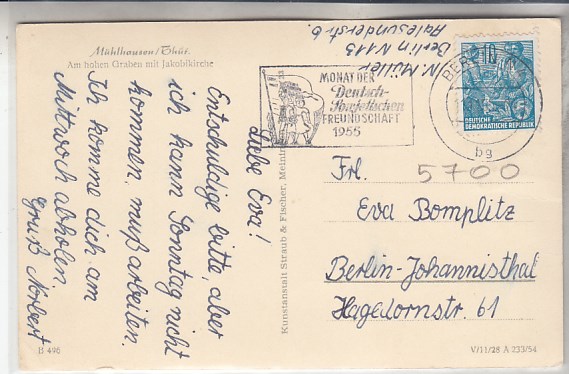 Mühlhausen/Thür.
Am hohen Graben mit Jakobikirche
N. Müller
Berlin N 113
Aalesunderstr. 6
MONAT DER
Deutsch-
Sowjetischen
FREUNDSCHAFT
1955
BERLIN
bg
10
DEUTSCHE
DEMOKRATISCHE REPUBLIK
5
Liebe Eva!
Entschuldige bitte, aber
ich kann Sonntag nicht
kommen, muß arbeiten.
Ich komme dich am
Mittwoch abholen
Gruß Norbert
Kunstanstalt Straub & Fischer, Meinin
5700
Frl.
Eva Bomplitz
Berlin-Johannisthal
Hagedornstr. 61
B 496
V/11/28 A 233/54